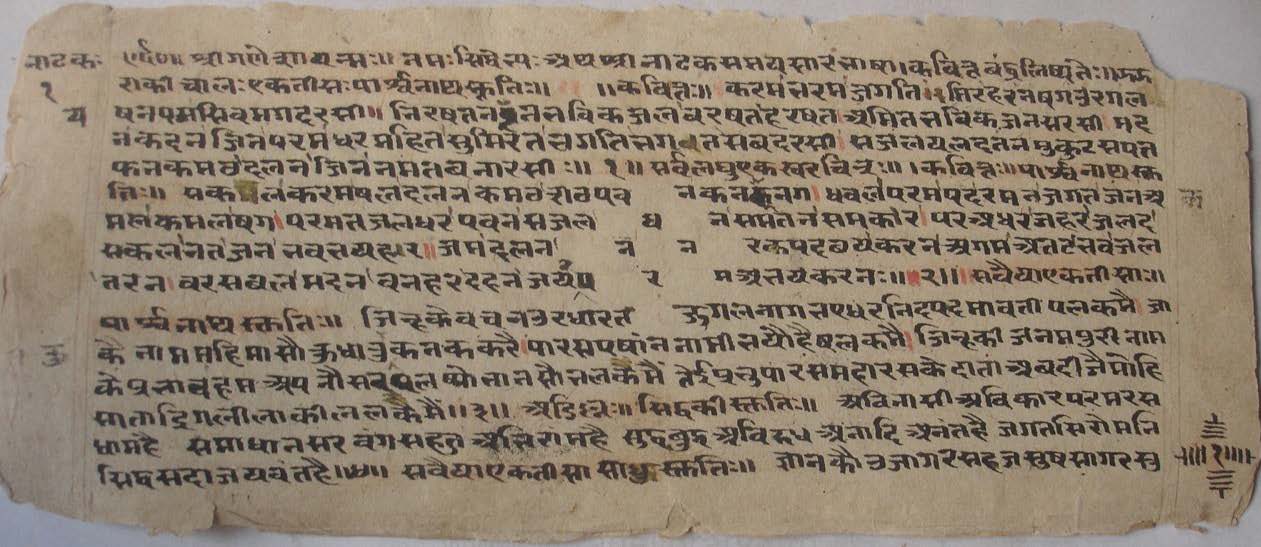 नाटकः ॥ श्री गणेशाय नमः॥ नमः सिद्धेभ्यः अथ श्री नाटक समयसार भाषा। कवित्त बंद लिष्यते॥
राकी चालः एकतीसः पार्श्वनाथ स्तुतिः॥ ॥कवित्तः॥ करम भरम जग ति मिर हरन षग उरग ल
१
य
षन पग सिव मग दरसी॥ निरषत नयन भविक जल वरषत हरषत अमित भविक जन सरसी मद
न कदन जिन परम धरम हित सुमिरत भगति भगत सब डरसी सजल जलद तन मुकुट सपत
फन कमठ दलन जिन नमत बनारसी ः॥ १॥ सर्व लघु एक स्वर चित्र ः॥ । कवित्तः॥ पार्श्वनाथ स्तु
तिः॥ सकल करम षल दलन कमठ शठ पव न कनक नग। धवल परम पद रमन जगत जन अ
मल कमल षग। परमत जलधर पवन सजल घ न सम तन समकर। पर अघ रजहर जलद
सकल जन नत भव भय हर॥ जम दलन न न रक पद छय करन अगम अतट भव जल
तरन। वर सबल मदन वन हर दहन जय प र म अभय करनः॥ २॥ सवैया एकतीसाः॥
पार्श्वनाथ स्तुतिः॥ जिन्हकै वचन उर धारत जुगल नाग भए धरनिंद पदमावती पलकमै जा
कै नाम महिमा सौ कुधातु कनक करै। पारस पषांन नामी भयौ है षलकमै। जिन्हकी जनमपुरी नाम
के प्रभाव हम अपनौ सरूप लष्यो भान सौ भलकमै तेई प्रभु पारस महारस के दाता अब दीजै मोहि
साता द्रिग लीला की ललकमैं॥३॥ अडिल्लः॥ सिद्धकी स्तुतिः॥ अविनासी अविकार परम रस
धाम है समाधान सरवंग सहज अभिराम है सुद्ध बुद्ध अविरुद्ध अनादि अनंत है जगत सिरोमनि
सिद्ध सदा जयवंत है।४॥ सवैया एकतीसा साधु स्तुतिः॥ ज्ञान कौ उजागर सहज सुष सागर सु
॥१॥